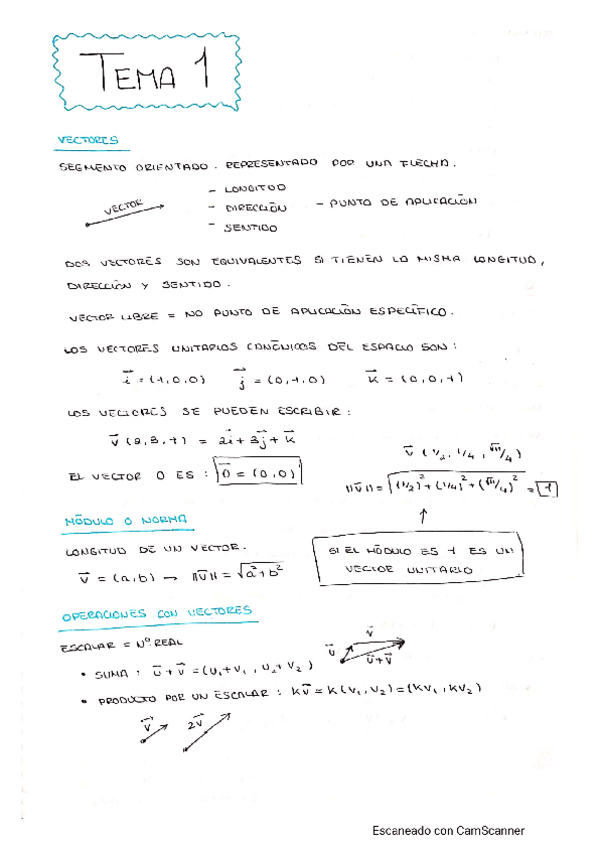 TEMA 1
VECTORES
SEGMENTO ORIENTADO. REPRESENTADO POR UNA FLECHA.
VECTOR
- LONGITUD
- DIRECCIÓN
- SENTIDO
- PUNTO DE APLICACIÓN
DOS VECTORES SON EQUIVALENTES SI TIENEN LA MISMA LONGITUD,
DIRECCIÓN Y SENTIDO.
VECTOR LIBRE = NO PUNTO DE APLICACIÓN ESPECÍFICO.
LOS VECTORES UNITARIOS CANÓNICOS DEL ESPACIO SON:
i⃗ = (1,0,0)   j⃗ = (0,1,0)   k⃗ = (0,0,1)
LOS VECTORES SE PUEDEN ESCRIBIR:
v⃗ (2,3,1) = 2i⃗ + 3j⃗ + k⃗
EL VECTOR 0 ES: 0⃗ = (0,0)
v⃗ (1/2, 1/4, √11/4)
||v⃗|| = √((1/2)² + (1/4)² + (√11/4)²) = 1
↑
SI EL MÓDULO ES 1 ES UN
VECTOR UNITARIO
MÓDULO O NORMA
LONGITUD DE UN VECTOR.
v⃗ = (a,b) → ||v⃗|| = √a²+b²
OPERACIONES CON VECTORES
ESCALAR = Nº REAL
• SUMA: u⃗ + v⃗ = (u₁+v₁, u₂+v₂)
u⃗ v⃗ u⃗+v⃗
• PRODUCTO POR UN ESCALAR: kv⃗ = k(v₁,v₂) = (kv₁, kv₂)
v⃗ 2v⃗
Escaneado con CamScanner